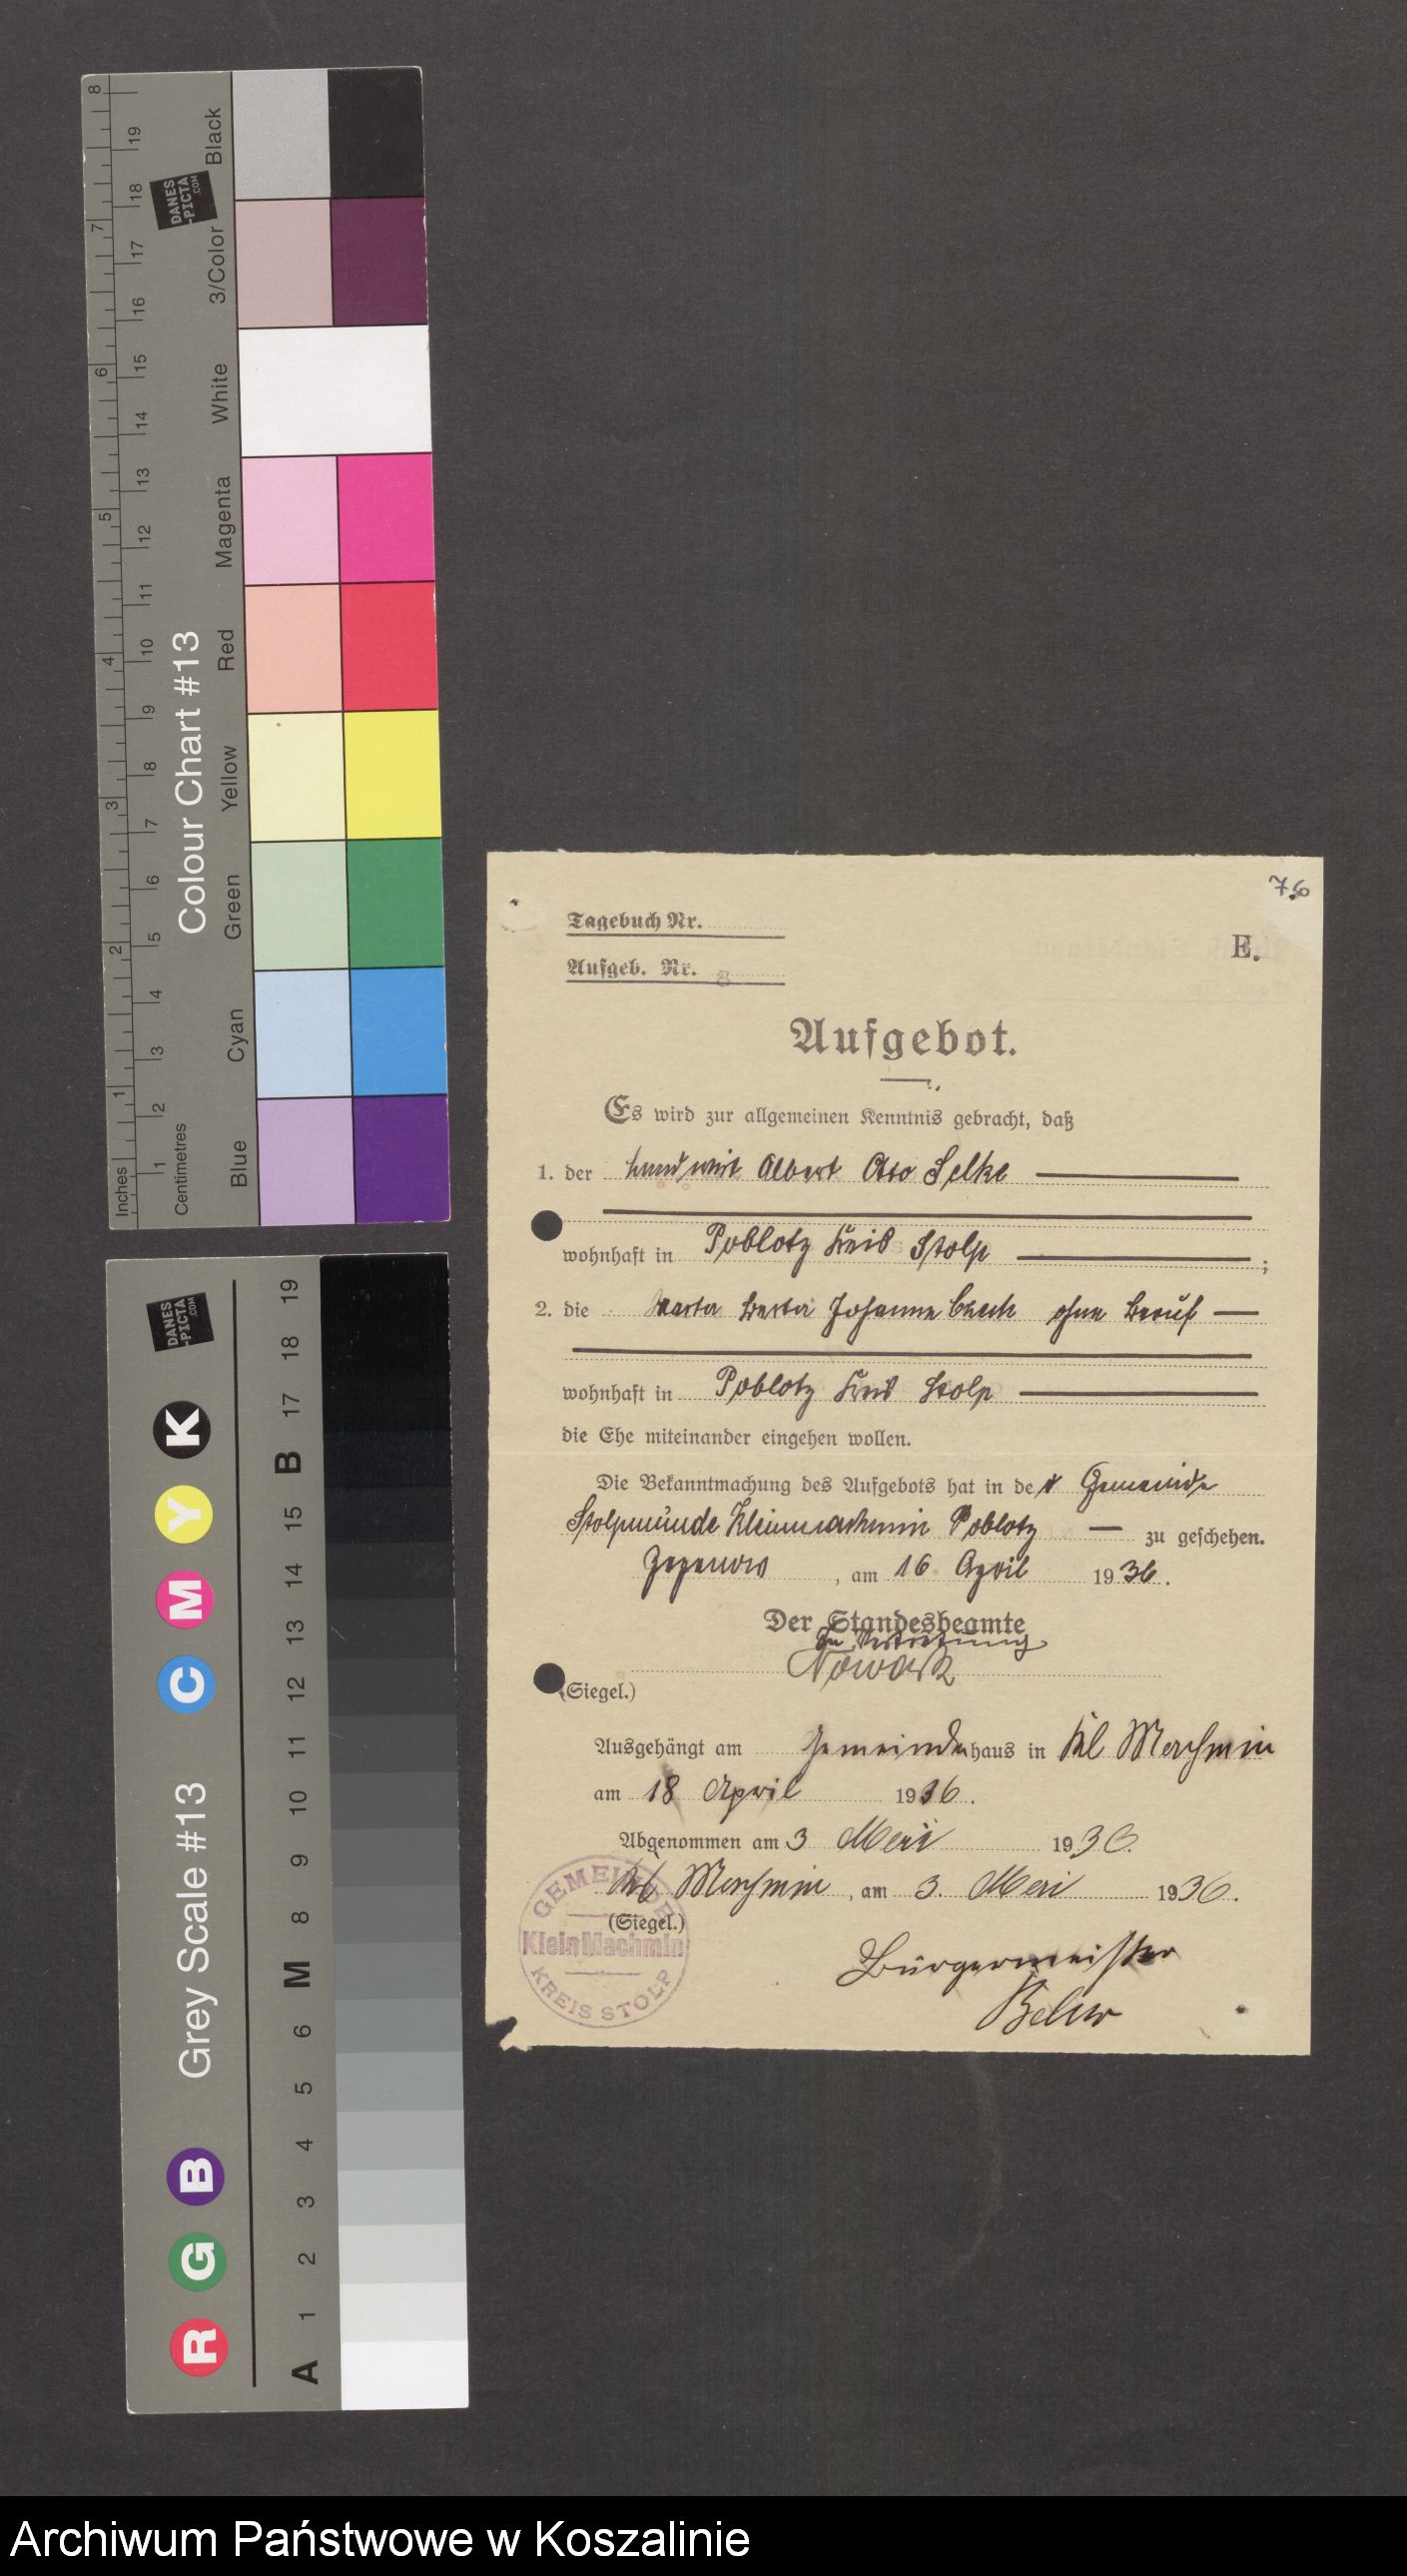 8 7 6 5 4 3 2 1
Inches
19 18 17 16 15 14 13 12 11 10 9 8 7 6 5 4 3 2 1
Centimetres
DANES
-PICTA
.COM
Colour Chart #13
Black
3/Color
White
Magenta
Red
Yellow
Green
Cyan
Blue
DANES
-PICTA
.COM
K Y M C
Grey Scale #13
B G R
19 18 17 B 15 14 13 12 11 10 9 8 M 6 5 4 3 2 1 A
76
Tagebuch Nr.
E.
Aufgeb. Nr. 8
Aufgebot.
Es wird zur allgemeinen Kenntnis gebracht, daß
1. der Landwirt Albert Otto Selke
wohnhaft in Poblotz Kreis Stolp ;
2. die Marta Berta Johanna ohne Beruf
wohnhaft in Poblotz Kreis Stolp
die Ehe miteinander eingehen wollen.
Die Bekanntmachung des Aufgebots hat in der Gemeinde
Stolpmünde Kleinmachmin Poblotz zu geschehen.
Zezenow, am 16 April 1936.
Der Standesbeamte
In Vertretung
Nowack
(Siegel.)
Ausgehängt am Gemeindehaus in Kl Machmin
am 18 April 1936.
Abgenommen am 3 Mai 1936.
Kl Machmin, am 3. Mai 1936.
(Siegel.)
GEMEINDE
Klein Machmin
KREIS STOLP
Bürgermeister
Archiwum Państwowe w Koszalinie